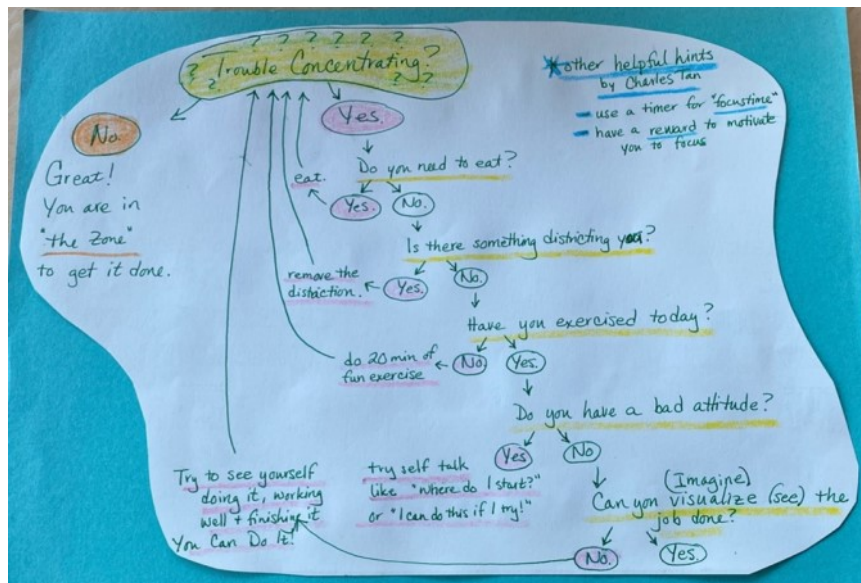 ? ? ? ? ? ?
? Trouble Concentrating?
? ? ?
*other helpful hints
by Charles Tan
- use a timer for "focustime"
- have a reward to motivate
you to focus
No.
Great!
You are in
"the Zone"
to get it done.
Yes.
Do you need to eat?
eat.
Yes.
No.
Is there something districting you?
remove the
distraction.
Yes.
No.
Have you exercised today?
do 20 min of
fun exercise
No.
Yes.
Do you have a bad attitude?
Yes
No
try self talk
like "Where do I start?"
or "I can do this if I try!"
(Imagine)
Can you visualize (see) the
job done?
No.
Yes.
Try to see yourself
doing it, working
well + finishing it
You Can Do It!